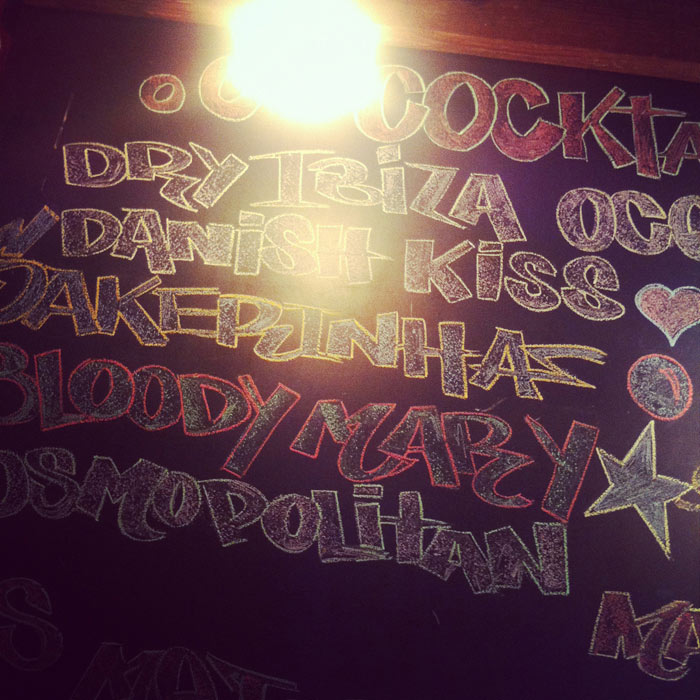 COCKTA
DRY IBIZA OCO
DANISH KISS
SAKEPINHAS
BLOODY MARY
COSMOPOLITAN
MA